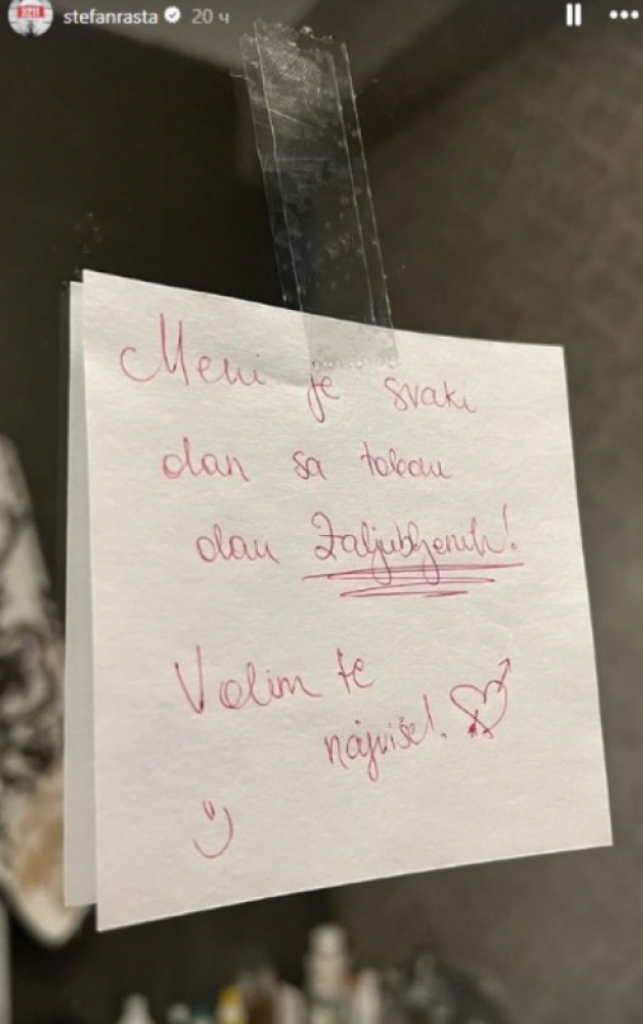 stefanrasta 20 ч
Meni je svaki
dan sa tobom
dan Zaljubljenih!
Volim te
najviše!
:)